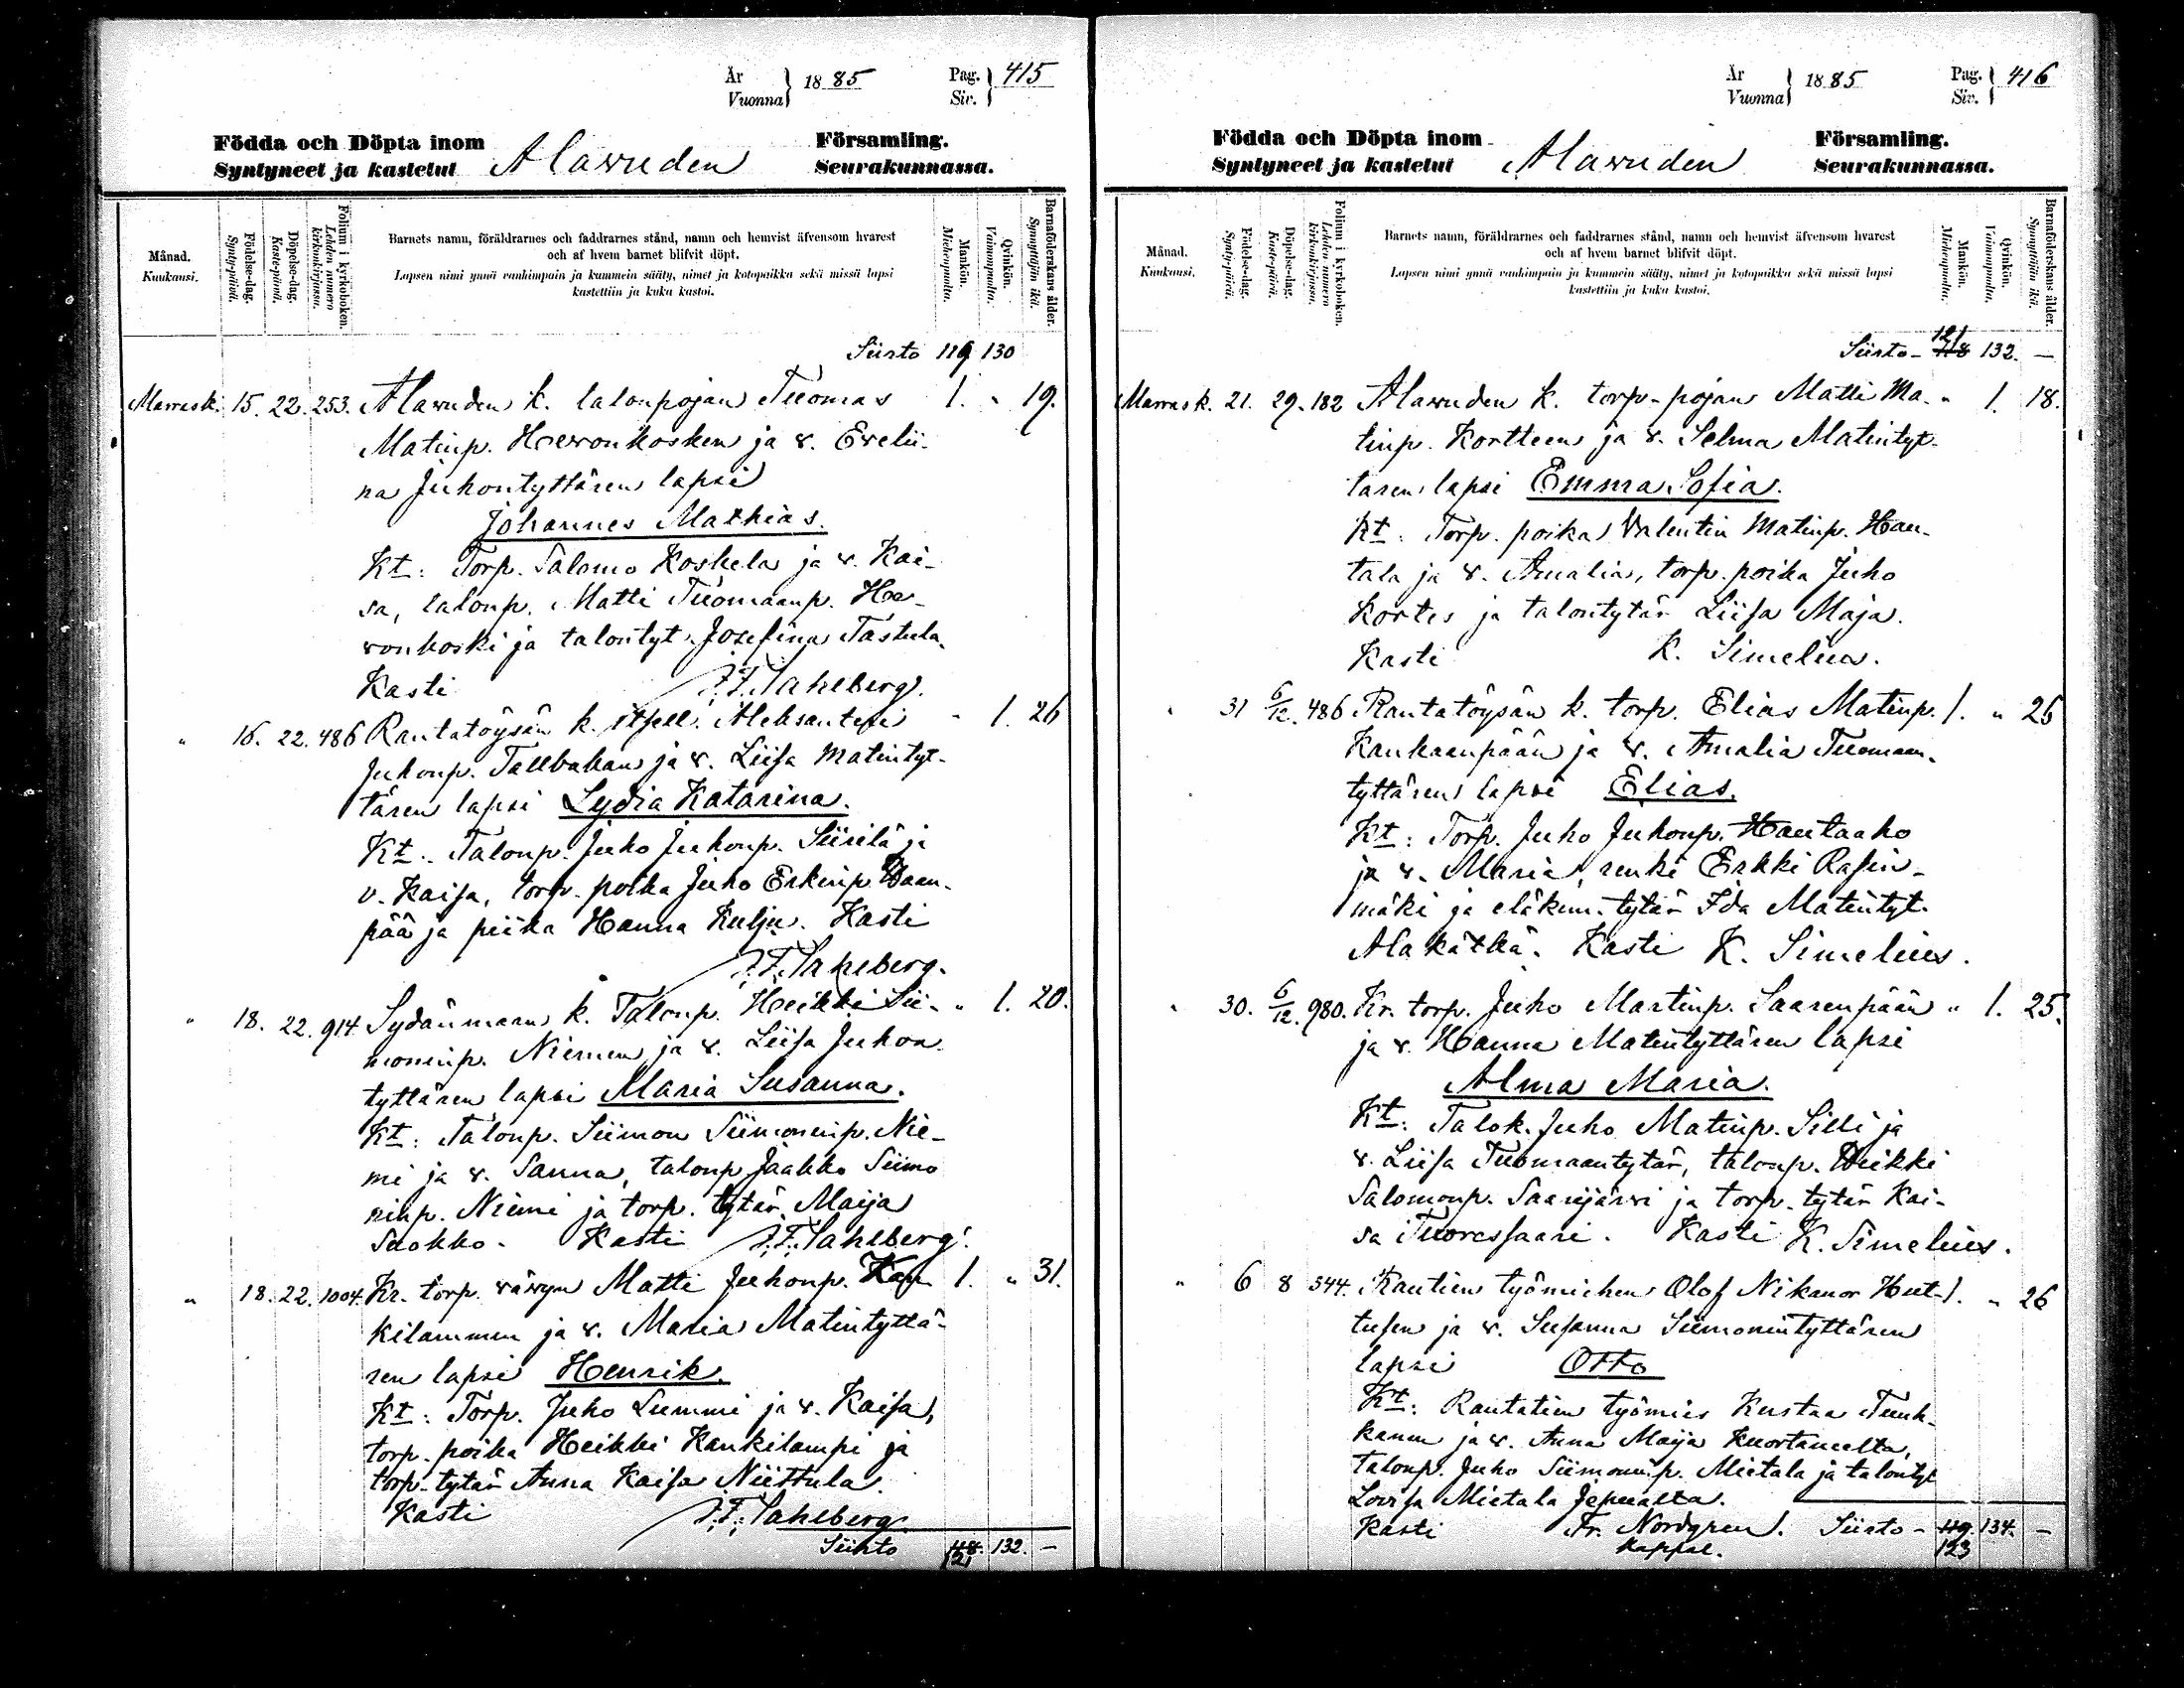 År
Vuonna } 1885 Pag.
Siv. } 415
Födda och Döpta inom Alawuden Församling.
Syntyneet ja kastetut Seurakunnassa.
Månad.
Kuukausi.
Födelse-dag.
Synty-päivä.
Döpelse-dag.
Kaste-päivä.
Folium i kyrkoboken.
Lehden numero kirkonkirjassa.
Barnets namn, föräldrarnes och faddrarnes stånd, namn och hemvist äfvensom hvarest
och af hvem barnet blifvit döpt.
Lapsen nimi ynnä vanhimpain ja kummein sääty, nimet ja kotopaikka sekä missä lapsi
kastettiin ja kuka kastoi.
Mankön.
Miehenpuolta.
Qvinkön.
Vaimonpuolta.
Barnaföderskans ålder.
Synnyttäjän ikä.
Siirto 119 130
Marrask. 15. 22. 253. Alawuden k. talonpojan Tuomas 1. " 19.
Matinp. Hewonkosken ja v. Eveli-
na Juhontyttären lapsi
Johannes Mathias.
Kt: Torp. Salomo Koskela ja v. Kai-
sa, talonp. Matti Tuomaanp. He-
vonkoski ja talontyt. Josefina Tastula.
Kasti J. F. Sahlberg.
" 16. 22. 486 Rantatöysän k. itsell. Aleksanteri " 1. 26
Juhonp. Tallbakan ja v. Liisa Matintyt-
tären lapsi Lydia Katarina.
Kt. Talonp. Juho Juhonp. Siirilä ja
v. Kaisa, torp. poika Juho Erkinp. Haan-
pää ja piika Hanna Kulju. Kasti
J. F. Sahlberg.
" 18. 22. 914 Sydänmaan k. Talonp. Heikki Sii- " 1. 20.
moninp. Niemen ja v. Liisa Juhon
tyttären lapsi Maria Susanna.
Kt: Talonp. Siimon Siimoninp. Nie-
mi ja v. Sanna, talonp. Jaakko Siimo
ninp. Niemi ja torp. tytär Maija
Suokko. Kasti J. F. Sahlberg.
" 18. 22. 1004. Kr. torp. vävyn Matti Juhonp. Kau 1. " 31.
kilammen ja v. Maria Matintyttä-
ren lapsi Henrik.
Kt: Torp. Juho Lummi ja v. Kaisa,
torp. poika Heikki Kaukilampi ja
torp. tytär Anna Kaisa Niittula.
Kasti J. F. Sahlberg
Siirto 118. 132. -
121
År
Vuonna } 1885 Pag.
Siv. } 416
Födda och Döpta inom Alawuden Församling.
Syntyneet ja kastetut Seurakunnassa.
Månad.
Kuukausi.
Födelse-dag.
Synty-päivä.
Döpelse-dag.
Kaste-päivä.
Folium i kyrkoboken.
Lehden numero kirkonkirjassa.
Barnets namn, föräldrarnes och faddrarnes stånd, namn och hemvist äfvensom hvarest
och af hvem barnet blifvit döpt.
Lapsen nimi ynnä vanhimpain ja kummein sääty, nimet ja kotopaikka sekä missä lapsi
kastettiin ja kuka kastoi.
Mankön.
Miehenpuolta.
Qvinkön.
Vaimonpuolta.
Barnaföderskans ålder.
Synnyttäjän ikä.
121
Siirto - 118 132. -
Marrask. 21. 29. 182 Alawuden k. torp. pojan Matti Ma- " 1. 18.
tinp. Kortteen ja v. Selma Matintyt-
tären lapsi Emma Sofia.
Kt: Torp. poika Valentin Matinp. Hau-
tala ja v. Amalia, torp. poika Juho
Kortes ja talontytär Liisa Maja.
Kasti K. Simelius.
" 31 6/12. 486 Rantatöysän k. torp. Elias Matinp. 1. " 26
Kauhaanpään ja v. Amalia Tuomaan-
tyttären lapsi Elias.
Kt: Torp. Juho Juhonp. Hautaaho
ja v. Maria, renki Erkki Rasin-
mäki ja eläkm. tytär Ida Matintyt.
Alakätkä. Kasti K. Simelius.
" 30. 6/12. 980. Kr. torp. Juho Martinp. Saarenpään " 1. 25.
ja v. Hanna Matintyttären lapsi
Alma Maria.
Kt: Talok. Juho Matinp. Silli ja
v. Liisa Tuomaantytär, talonp. Heikki
Salomonp. Saarijärvi ja torp. tytär Kai-
sa Tuoressaari. Kasti K. Simelius.
" 6 8 544. Rautien työmiehen Olof Nikanor Hut- 1. " 26
tusen ja v. Susanna Siimonintyttären
lapsi Otto
Kt: Rautatien työmies Kustaa Tuuk-
kanen ja v. Anna Maija Kuortaneelta,
talonp. Juho Siimoninp. Mietala ja talontyt
Lovisa Mietala Jepualta.
Kasti Fr. Nordgren. Siirto - 119. 134. -
Kappal. 123